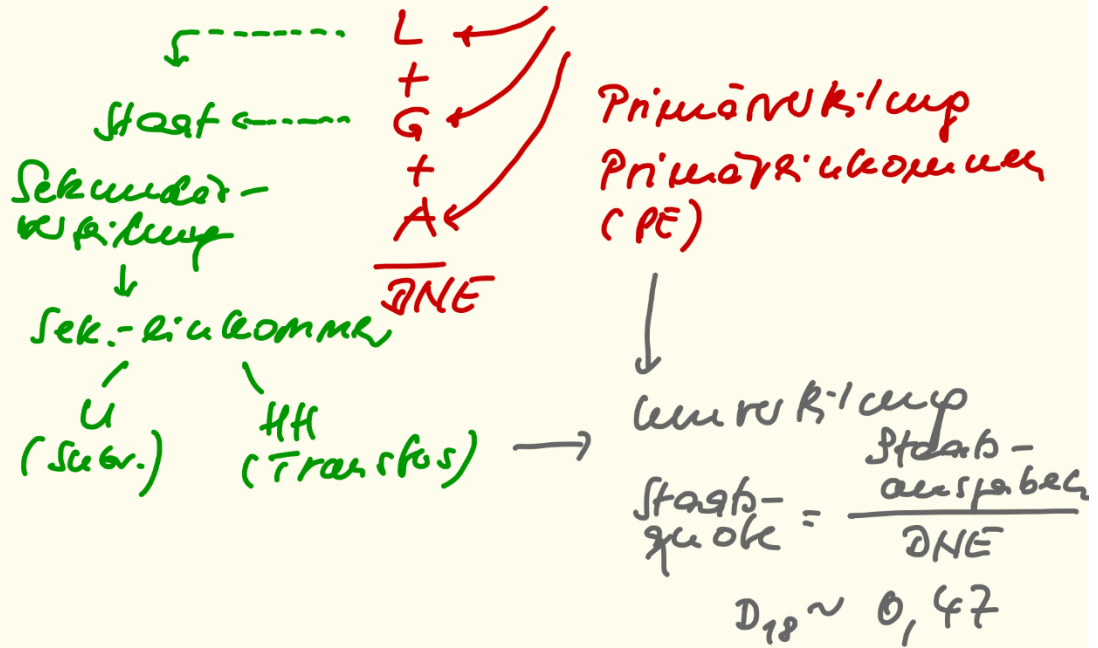 L
+
G
+
A
DNE
Primärverteilung
Primäreinkommen
(PE)
Staat
Sekundär-
verteilung
Sek.-einkommen
U
(Subv.)
HH
(Transfers)
Umverteilung
Staats-
quote = Staats-
ausgaben
DNE
D18 ~ 0,47